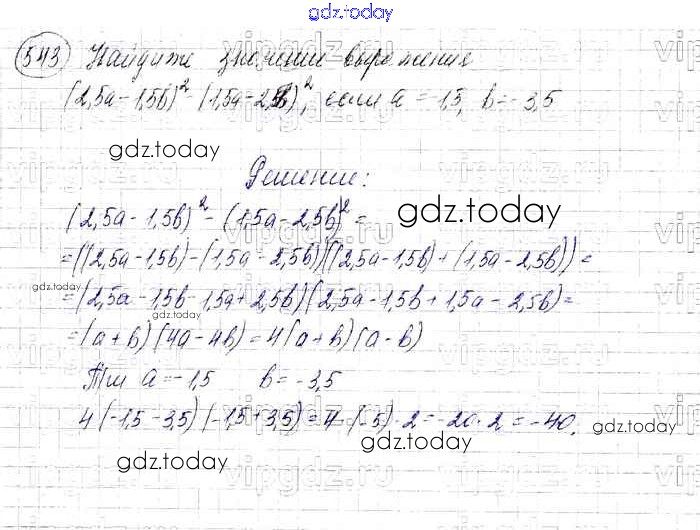 gdz.today
543 Найдите значение выражения
(2,5a-1,5b)² - (1,5a-2,5b)², если a = -1,5, b = -3,5
gdz.today
Решение:
(2,5a-1,5b)² - (1,5a-2,5b)² =
gdz.today
= ((2,5a-1,5b)-(1,5a-2,5b))((2,5a-1,5b)+(1,5a-2,5b)) =
gdz.today
= (2,5a-1,5b-1,5a+2,5b)(2,5a-1,5b+1,5a-2,5b) =
= (a+b)(4a-4b) = 4(a+b)(a-b)
При a = -1,5 b = -3,5
4(-1,5-3,5)(-1,5+3,5) = 4·(-5)·2 = -20·2 = -40.
gdz.today
gdz.today
gdz.today
vipgdz.ru